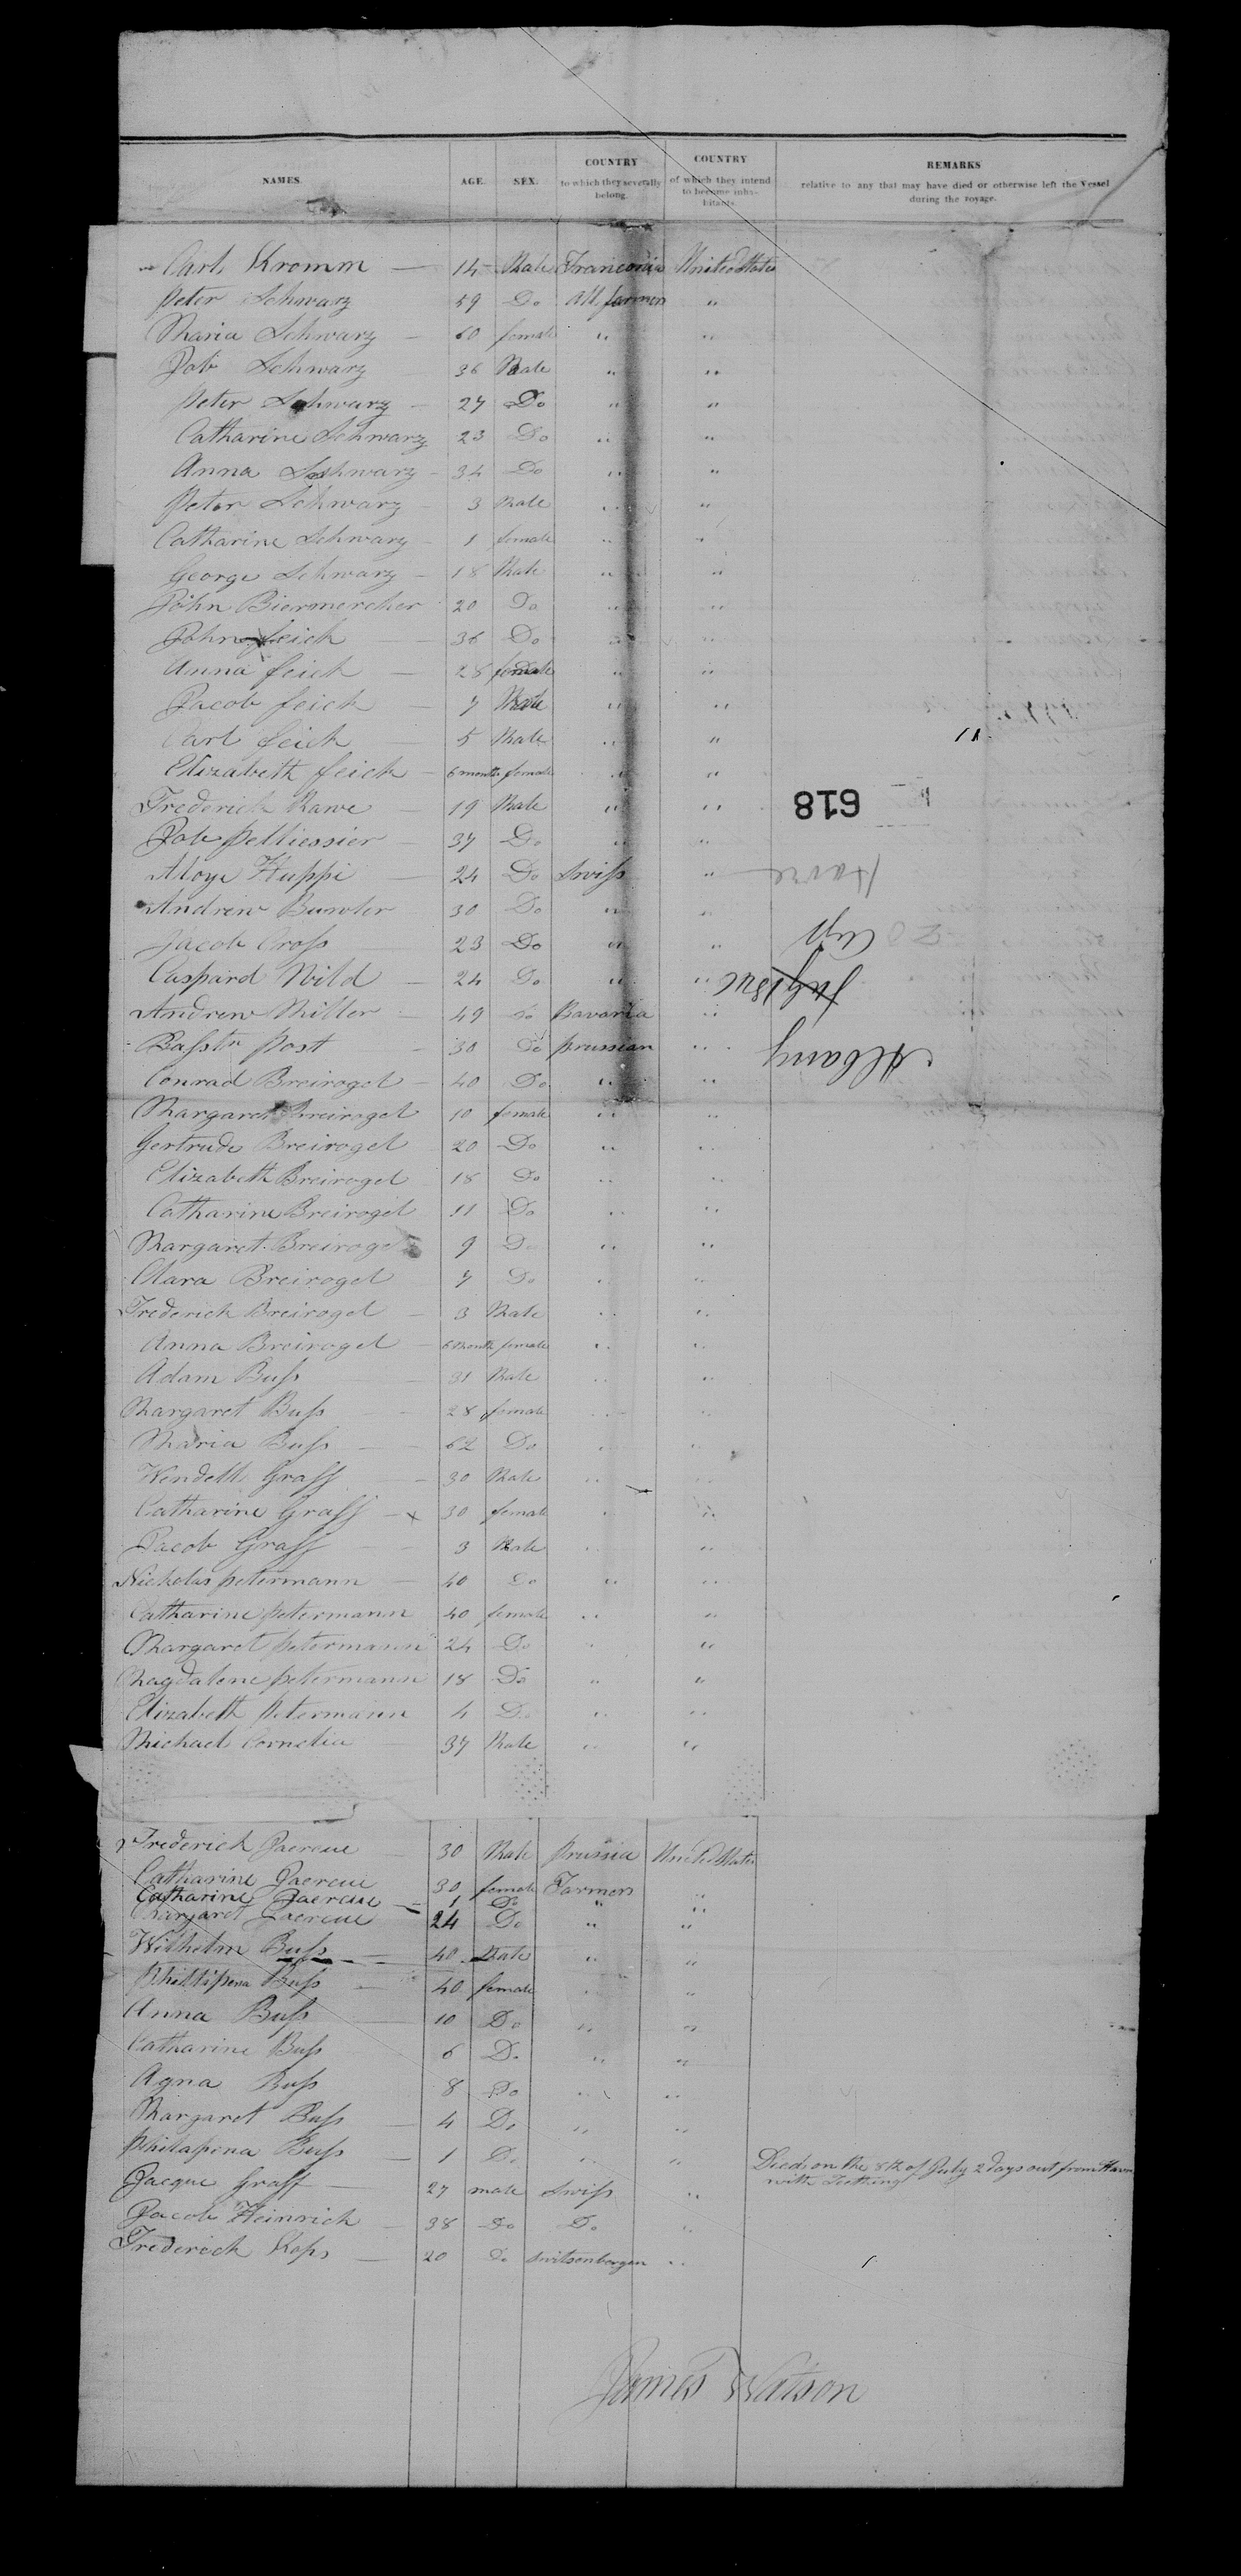 NAMES. AGE. SEX. COUNTRY to which they severally belong. COUNTRY of which they intend to become inhabitants. REMARKS relative to any that may have died or otherwise left the Vessel during the voyage.
Carl Kromm — 14 Male Franconia United States
Peter Schwarz 59 Do All farmers "
Maria Schwarz — 60 female " "
Jab Schwarz 36 Male " "
Peter Schwarz — 27 Do " "
Catharine Schwarz 23 Do " "
Anna Schwarz — 34 Do " "
Peter Schwarz — 3 Male " "
Catharine Schwarz — 1 female " "
George Schwarz — 18 Male " "
John Biermercher 20 Do " "
John feich — 36 Do " "
Anna feich — 28 female " "
Jacob feich — 7 Male " "
Carl feich — 5 Male " "
Elizabeth feich — 6 months female " "
Frederick Rawe — 19 Male " "
618
Jab Pelliessier — 37 Do " "
Aloye Huppi — 24 Do Swiss "
Havre
Andrew Bunter 30 Do " "
Jacob Cross 23 Do " "
Caspard Wild — 24 Do " "
July 1846
Andrew Miller — 49 do Bavaria "
Basstn Post — 30 Do prussian "
Albany
Conrad Breirogel — 40 Do " "
Margaret Breirogel 10 female " "
Gertrude Breirogel 20 Do " "
Elizabeth Breirogel — 18 Do " "
Catharine Breirogel 11 Do " "
Margaret Breirogel 9 Do " "
Clara Breirogel 7 Do " "
Frederick Breirogel — 3 Male " "
Anna Breirogel — 6 Month female " "
Adam Buss — 31 Male " "
Margaret Buss — 28 female " "
Maria Buss — 62 Do " "
Wendell Graff — 30 Male " "
Catharine Graff — x 30 female " "
Jacob Graff — 3 Male " "
Nickolas petermann — 40 Do " "
Catharine petermann 40 female " "
Margaret petermann 24 Do " "
Magdalene petermann 18 Do " "
Elizabeth Petermann 4 Do " "
Michael Cornelia 37 Male " "
Frederick Jaercue — 30 Male prussia United States
Catharine Jaercue 30 female Farmers "
Catharine Jaercue — 1 Do " "
Margaret Jaercue 24 Do " "
Wilhelm Buss — 40 Male " "
Phillipena Buss — 40 female " "
Anna Buss — 10 Do " "
Catharine Buss 6 Do " "
Agna Buss 8 Do " "
Margaret Buss — 4 Do " "
Philapena Buss — 1 Do " " Died on the 8th of July 2 days out from Havre
with Teething
Jacque Graff — 27 male Swiss "
Jacob Heinrich — 38 Do Do "
Frederick Kops — 20 do "
James Watson